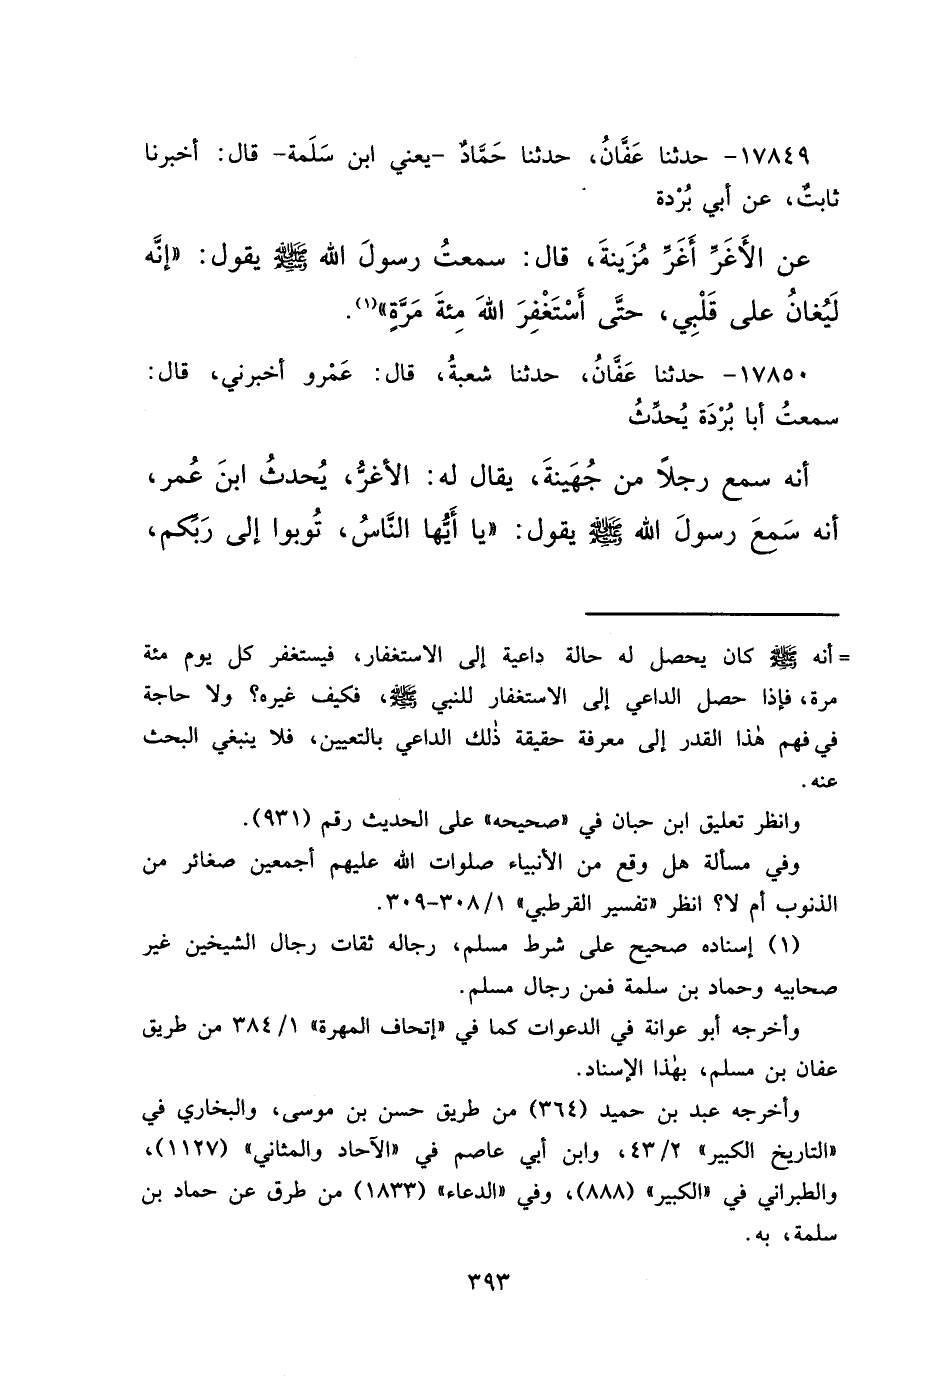 ١٧٨٤٩- حدثنا عَفَّانُ، حدثنا حَمَّادٌ -يعني ابن سَلَمة- قال: أخبرنا
ثابتٌ، عن أبي بُرْدة
عن الأَغَرِّ أَغَرِّ مُزَينةَ، قال: سمعتُ رسولَ الله ﷺ يقول: «إنَّه
لَيُغانُ على قَلْبِي، حتَّى أَسْتَغْفِرَ اللهَ مِئةَ مَرَّةٍ»(١).
١٧٨٥٠- حدثنا عَفَّانُ، حدثنا شعبةُ، قال: عَمْرو أخبرني، قال:
سمعتُ أبا بُرْدَة يُحدِّثُ
أنه سمع رجلاً من جُهَينةَ، يقال له: الأغرُّ، يُحدثُ ابنَ عُمر،
أنه سَمِعَ رسولَ الله ﷺ يقول: «يا أَيُّها النَّاسُ، تُوبوا إلى رَبِّكم،
= أنه ﷺ كان يحصل له حالة داعية إلى الاستغفار، فيستغفر كل يوم مئة
مرة، فإذا حصل الداعي إلى الاستغفار للنبي ﷺ، فكيف غيره؟ ولا حاجة
في فهم هٰذا القدر إلى معرفة حقيقة ذٰلك الداعي بالتعيين، فلا ينبغي البحث
عنه.
وانظر تعليق ابن حبان في «صحيحه» على الحديث رقم (٩٣١).
وفي مسألة هل وقع من الأنبياء صلوات الله عليهم أجمعين صغائر من
الذنوب أم لا؟ انظر «تفسير القرطبي» ١/ ٣٠٨-٣٠٩.
(١) إسناده صحيح على شرط مسلم، رجاله ثقات رجال الشيخين غير
صحابيه وحماد بن سلمة فمن رجال مسلم.
وأخرجه أبو عوانة في الدعوات كما في «إتحاف المهرة» ١/ ٣٨٤ من طريق
عفان بن مسلم، بهٰذا الإسناد.
وأخرجه عبد بن حميد (٣٦٤) من طريق حسن بن موسى، والبخاري في
«التاريخ الكبير» ٢/ ٤٣، وابن أبي عاصم في «الآحاد والمثاني» (١١٢٧)،
والطبراني في «الكبير» (٨٨٨)، وفي «الدعاء» (١٨٣٣) من طرق عن حماد بن
سلمة، به.
٣٩٣